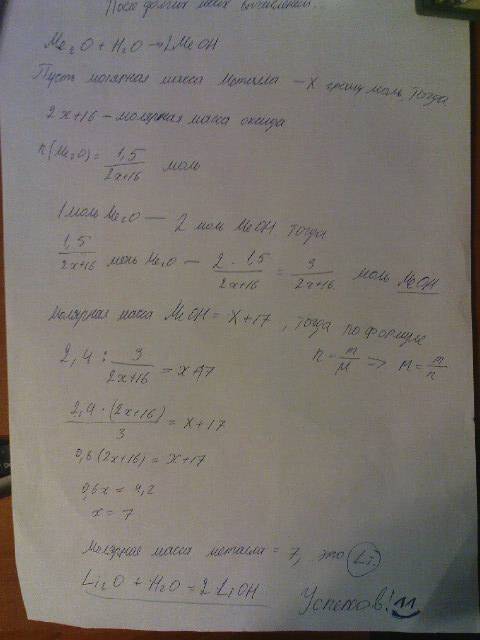 После долгих моих вычислений...
Me₂O + H₂O → 2MeOH
Пусть молярная масса металла – X грамм/моль. Тогда
2x+16 – молярная масса оксида
n(Me₂O) = 1,5 / (2x+16) моль
1 моль Me₂O — 2 моль MeOH Тогда
1,5 / (2x+16) моль Me₂O — 2 · 1,5 / (2x+16) = 3 / (2x+16) моль MeOH
Молярная масса MeOH = X+17, тогда по формуле
n = m/M => M = m/n
2,4 : 3 / (2x+16) = x+17
2,4 · (2x+16) / 3 = X+17
0,8(2x+16) = X+17
0,6x = 4,2
x = 7
Молярная масса металла = 7, это Li
Li₂O + H₂O = 2 LiOH
Успехов!